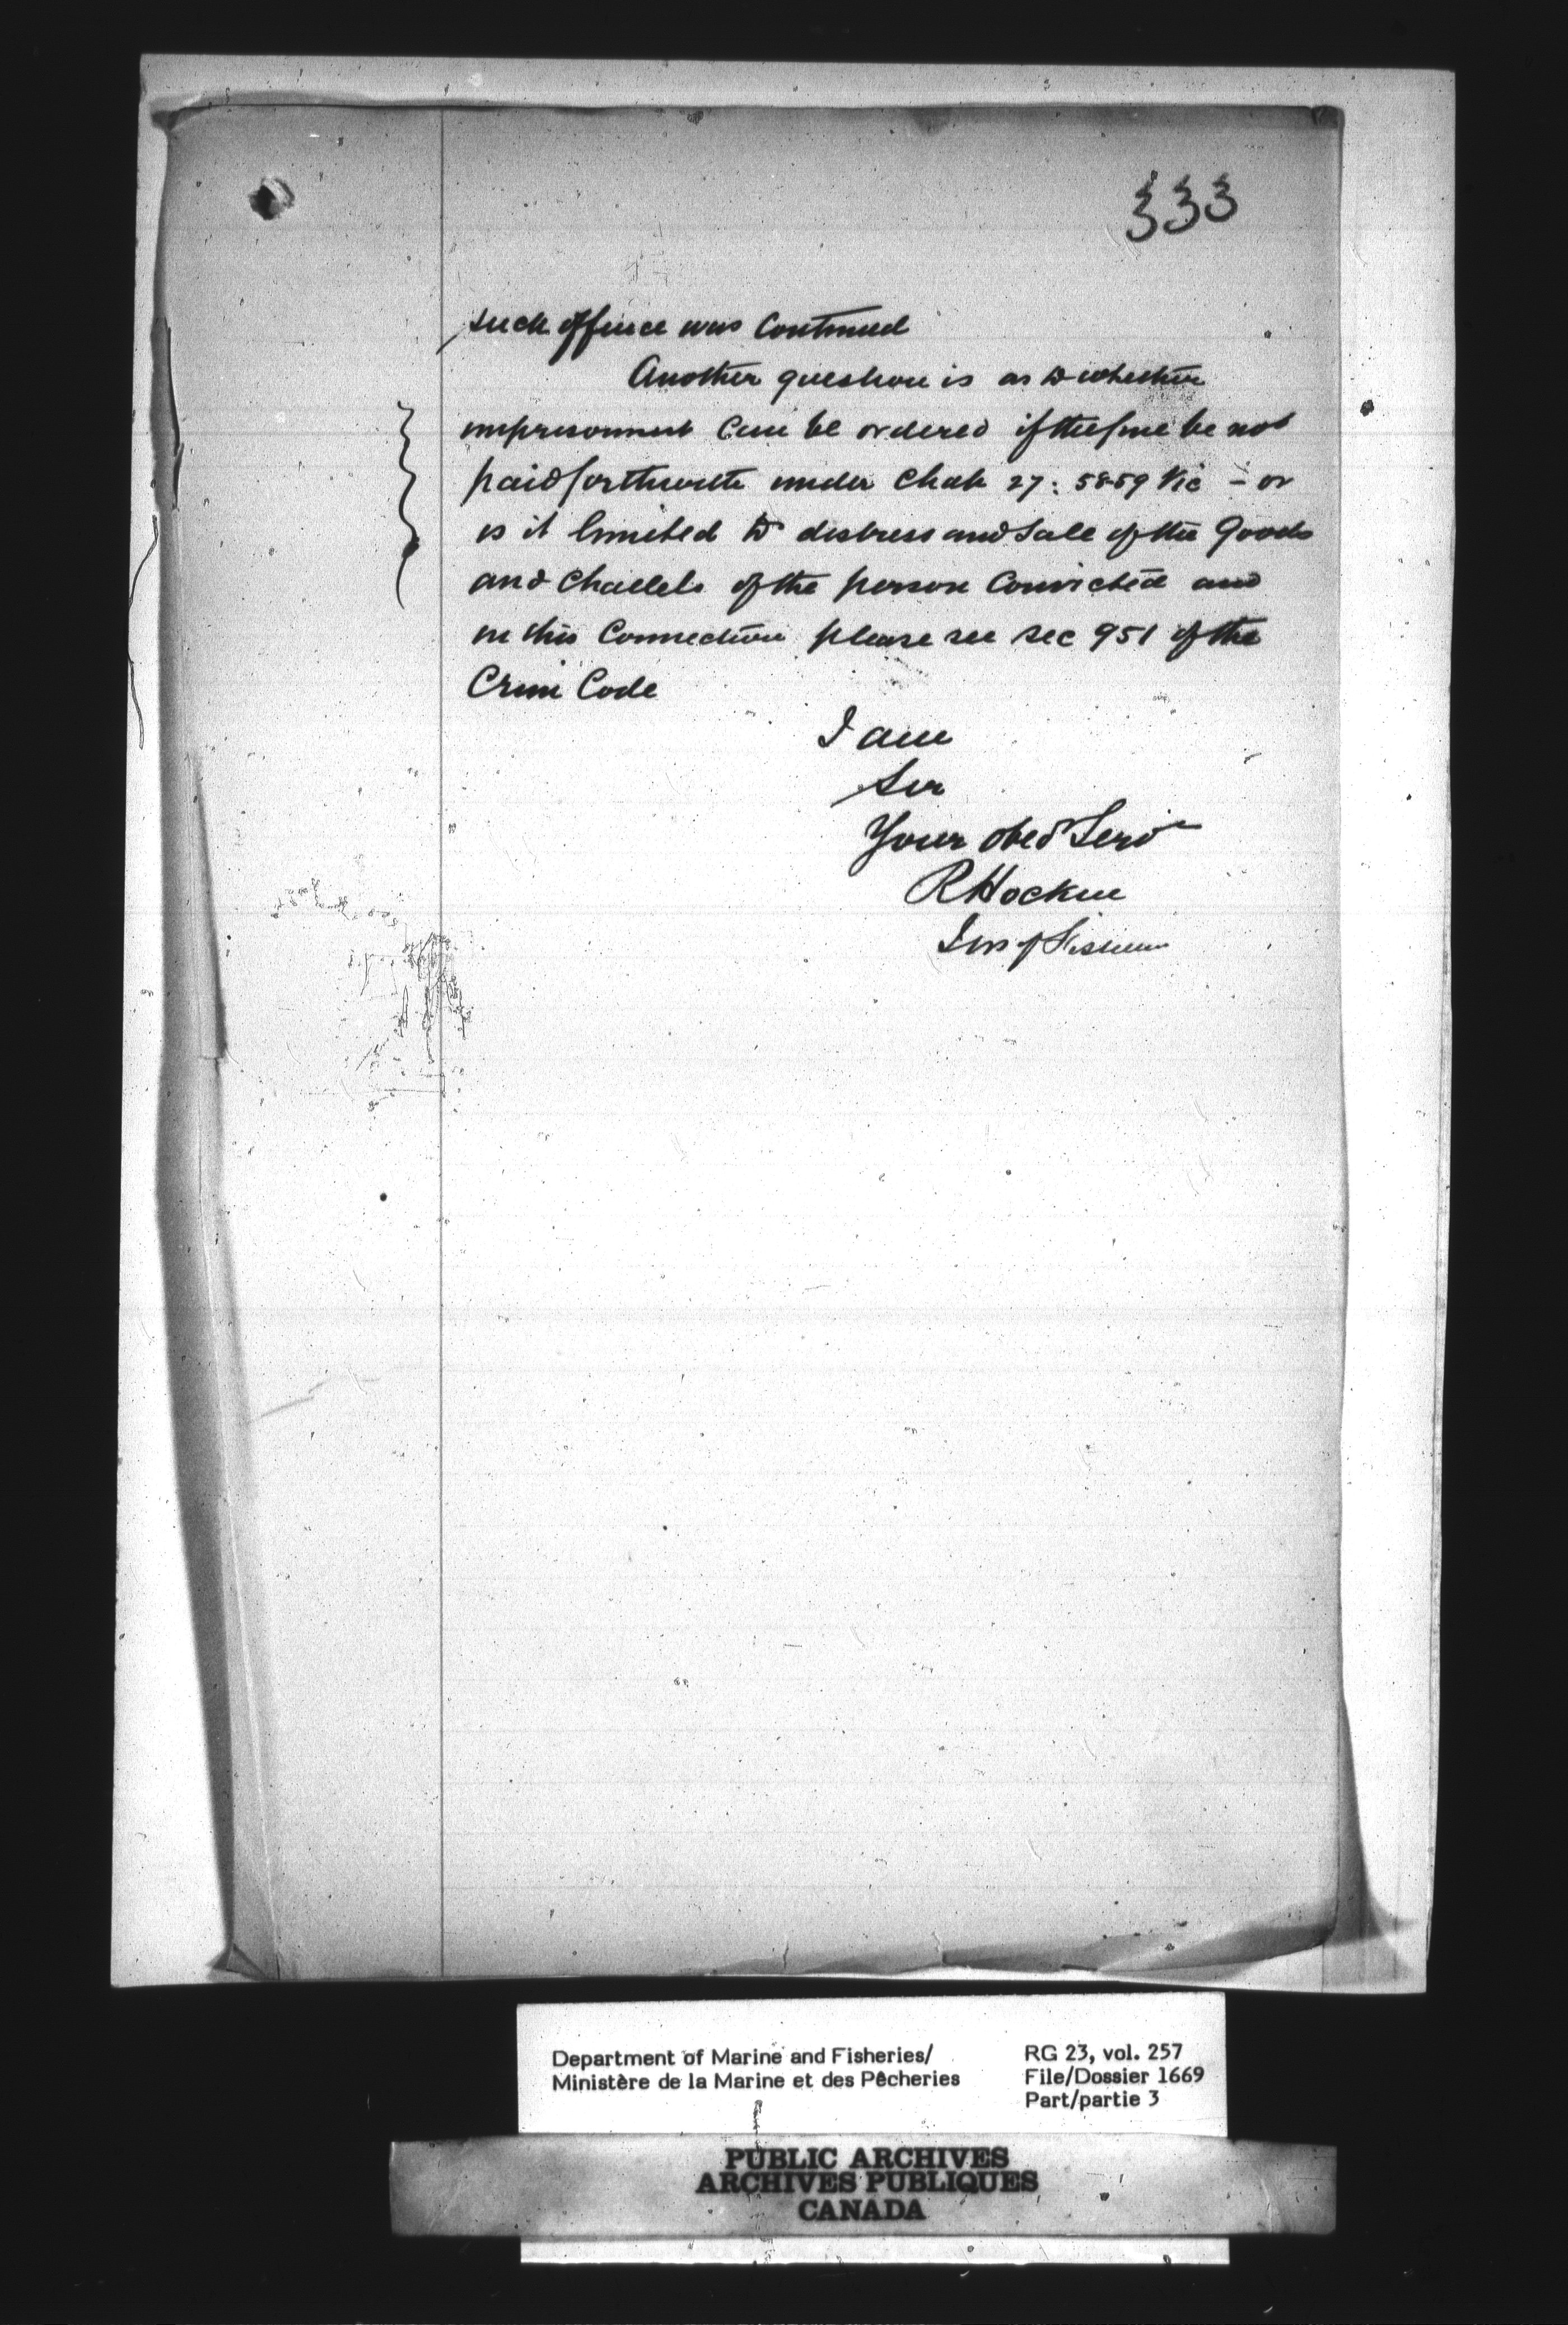 333
such offence was continued
Another question is as to whether
imprisonment can be ordered if the fine be not
paid forthwith under Chap 27: 58-59 Vic - or
is it limited to distress and sale of the Goods
and Chattels of the person convicted and
in this connection please see sec 951 of the
Crim Code
I am
Sir
Your obed Serv
R Hockin
Ins of Fisheries
Department of Marine and Fisheries/
Ministère de la Marine et des Pêcheries
RG 23, vol. 257
File/Dossier 1669
Part/partie 3
PUBLIC ARCHIVES
ARCHIVES PUBLIQUES
CANADA